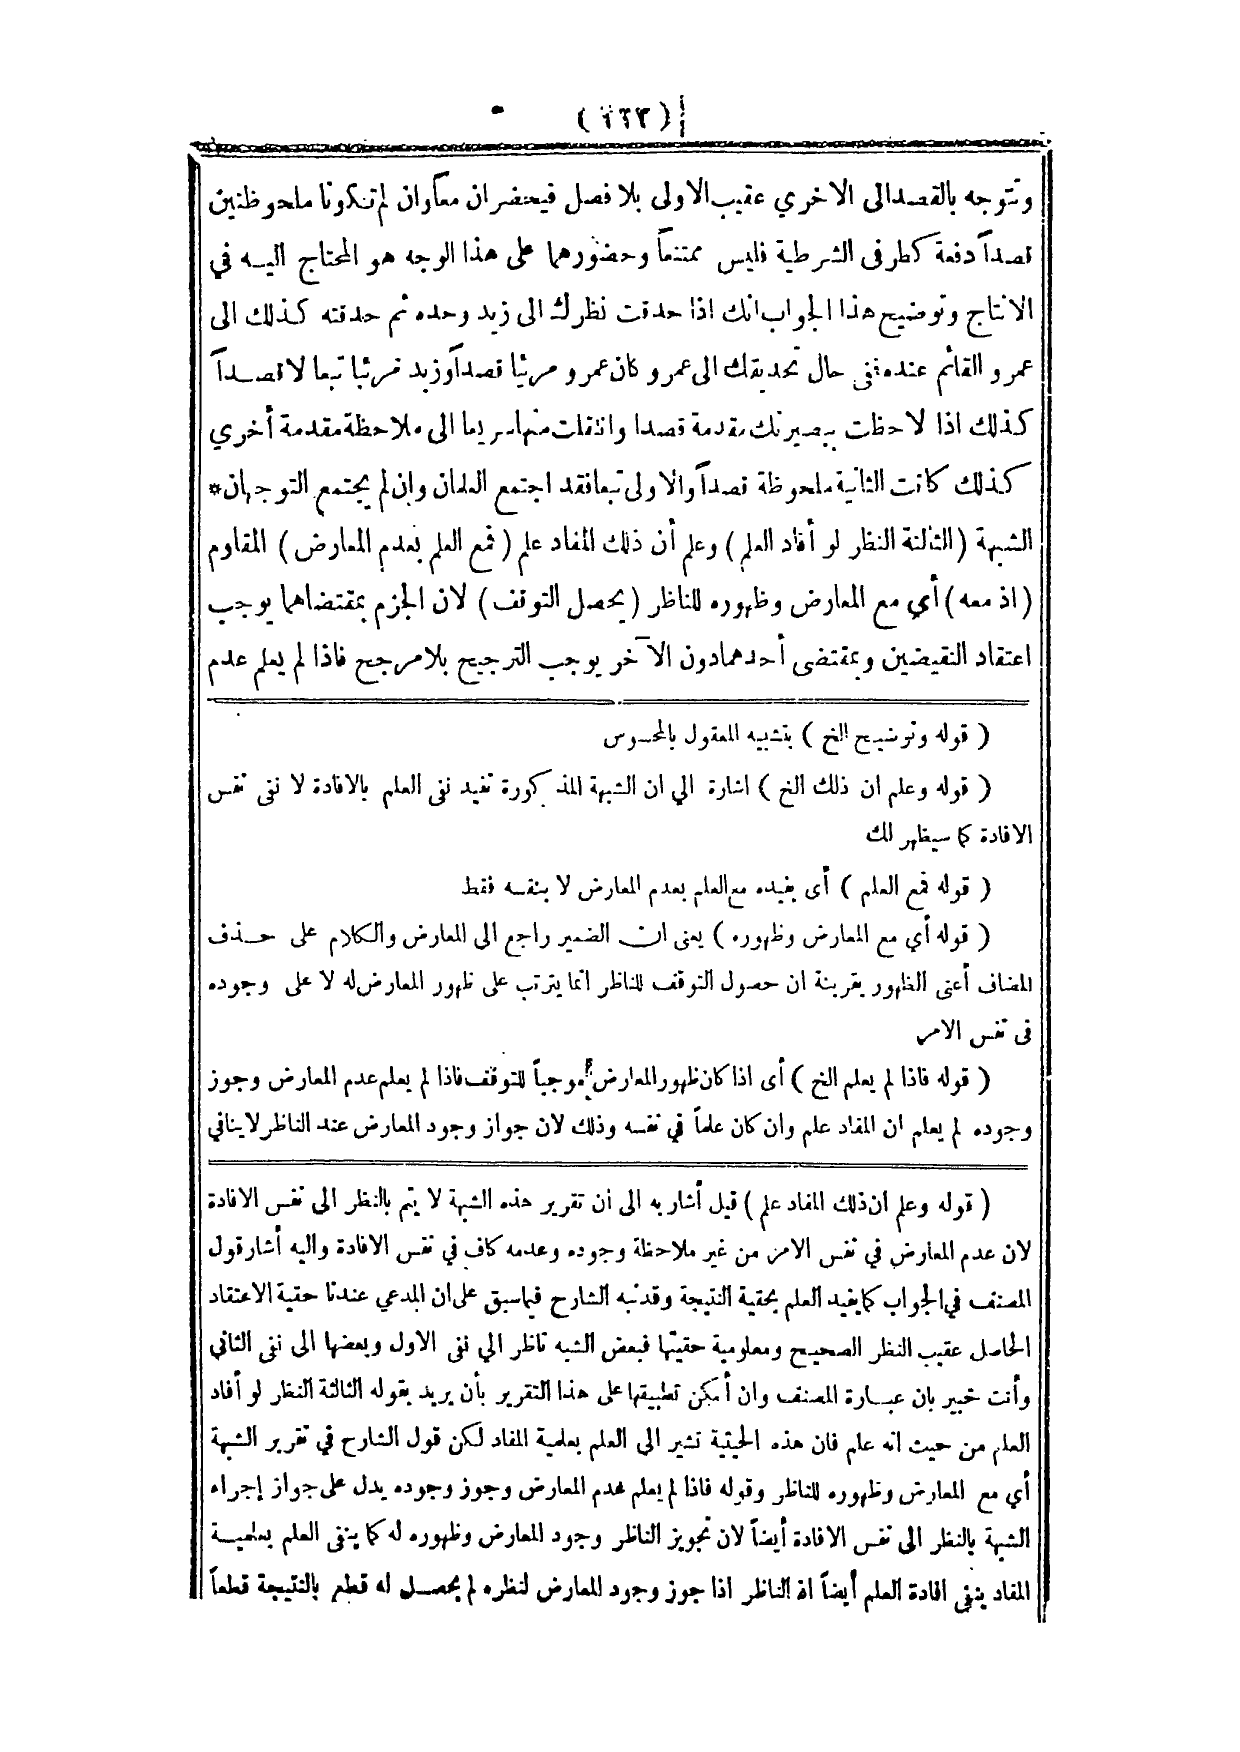 (٢٢٣)
وتتوجه بالقصد الى الاخري عقيب الاولى بلا فصل فيحضران معاً وان لم تكونا ملحوظتين
قصداً دفعة كطرفى الشرطية فليس ممتنعاً وحضورهما على هذا الوجه هو المحتاج اليه في
الانتاج وتوضيح هذا الجواب انك اذا حدقت نظرك الى زيد وحده ثم حدقته كذلك الى
عمرو القائم عنده ففى حال تحديقك الى عمرو كان عمرو مرئيا قصداً وزيد مرئيا تبعا لا قصداً
كذلك اذا لاحظت ببصيرتك مقدمة قصدا وانتقلت منها سريعا الى ملاحظة مقدمة أخري
كذلك كانت الثانية ملحوظة قصداً والاولى تبعا فقد اجتمع العلمان وان لم يجتمع التوجهان*
الشبهة (الثالثة النظر لو أفاد العلم) وعلم أن ذلك المفاد علم (فمع العلم بعدم المعارض) المقاوم
(اذ معه) أي مع المعارض وظهوره للناظر (يحصل التوقف) لان الجزم بمقتضاهما يوجب
اعتقاد النقيضين وبمقتضى أحدهما دون الآخر يوجب الترجيح بلا مرجح فاذا لم يعلم عدم
( قوله وتوضيح الخ ) بتشبيه المعقول بالمحسوس
( قوله وعلم ان ذلك الخ ) اشارة الي ان الشبهة المذكورة تفيد نفى العلم بالافادة لا نفى نفس
الافادة كما سيظهر لك
( قوله فمع العلم ) أى يفيده مع العلم بعدم المعارض لا بنفسه فقط
( قوله أي مع المعارض وظهوره ) يعنى ان الضمير راجع الى المعارض والكلام على حذف
المضاف أعنى الظهور بقرينة ان حصول التوقف للناظر انما يترتب على ظهور المعارض له لا على وجوده
فى نفس الامر
( قوله فاذا لم يعلم الخ ) أى اذا كان ظهور المعارض موجباً للتوقف فاذا لم يعلم عدم المعارض وجوز
وجوده لم يعلم ان المفاد علم وان كان علماً في نفسه وذلك لان جواز وجود المعارض عند الناظر لاينافي
( قوله وعلم ان ذلك المفاد علم ) قيل أشار به الى أن تقرير هذه الشبهة لا يتم بالنظر الى نفس الافادة
لان عدم المعارض في نفس الامر من غير ملاحظة وجوده وعدمه كاف في نفس الافادة واليه أشار قول
المصنف في الجواب كما يفيد العلم بحقية النتيجة وقد نبه الشارح فيما سبق على ان المدعي عندنا حقية الاعتقاد
الحاصل عقيب النظر الصحيح ومعلومية حقيتها فبعض الشبه ناظر الي نفى الاول وبعضها الى نفى الثاني
وأنت خبير بان عبارة المصنف وان أمكن تطبيقها على هذا التقرير بأن يريد بقوله الثالثة النظر لو أفاد
العلم من حيث انه علم فان هذه الحيثية تشير الى العلم بعلمية المفاد لكن قول الشارح في تقرير الشبهة
أي مع المعارض وظهوره للناظر وقوله فاذا لم يعلم عدم المعارض وجوز وجوده يدل على جواز إجراء
الشبهة بالنظر الى نفس الافادة أيضاً لان تجويز الناظر وجود المعارض وظهوره له كما ينفى العلم بعلمية
المفاد ينفى افادة العلم أيضاً اذ الناظر اذا جوز وجود المعارض لنظره لم يحصل له قطع بالنتيجة قطعاً